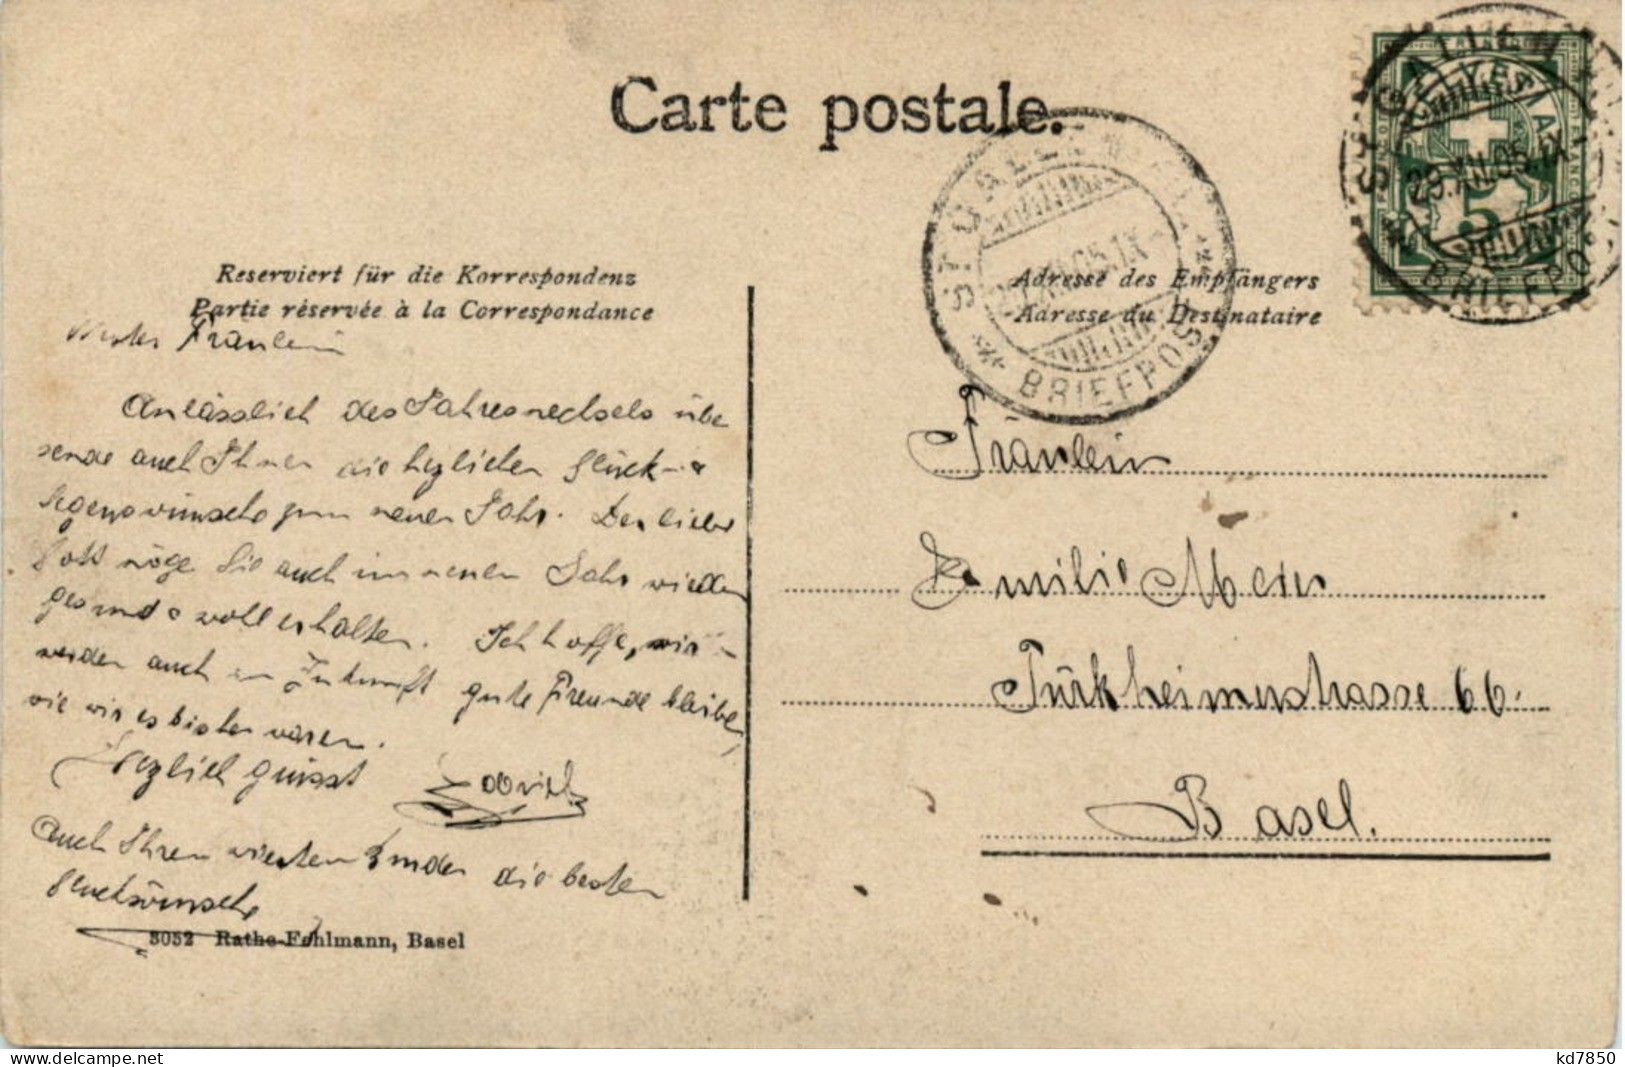 Carte postale.
ST. GALLEN
29.XII.05.IX
BRIEFPOST
5
ST. GALLEN
BRIEFPOST
Reserviert für die Korrespondenz
Partie réservée à la Correspondance
Adresse des Empfängers
Adresse du Destinataire
Fräulein
Anlässlich des Jahreswechsels über
sende auch Ihnen die herzlichen Glück- &
Segenswünsche zum neuen Jahr. Der liebe
Gott möge Sie auch im neuen Jahr wieder
gesund & wohl erhalten. Ich hoffe, wir
werden auch in Zukunft gute Freunde bleiben,
wie wir es bisher waren.
Herzlich grüsst
Auch Ihren werten Kinder die besten
Glückwünsche
3052 Rathe-Fehlmann, Basel
Fräulein
Emilie Meier
Türkheimerstrasse 66.
Basel.
kd7850